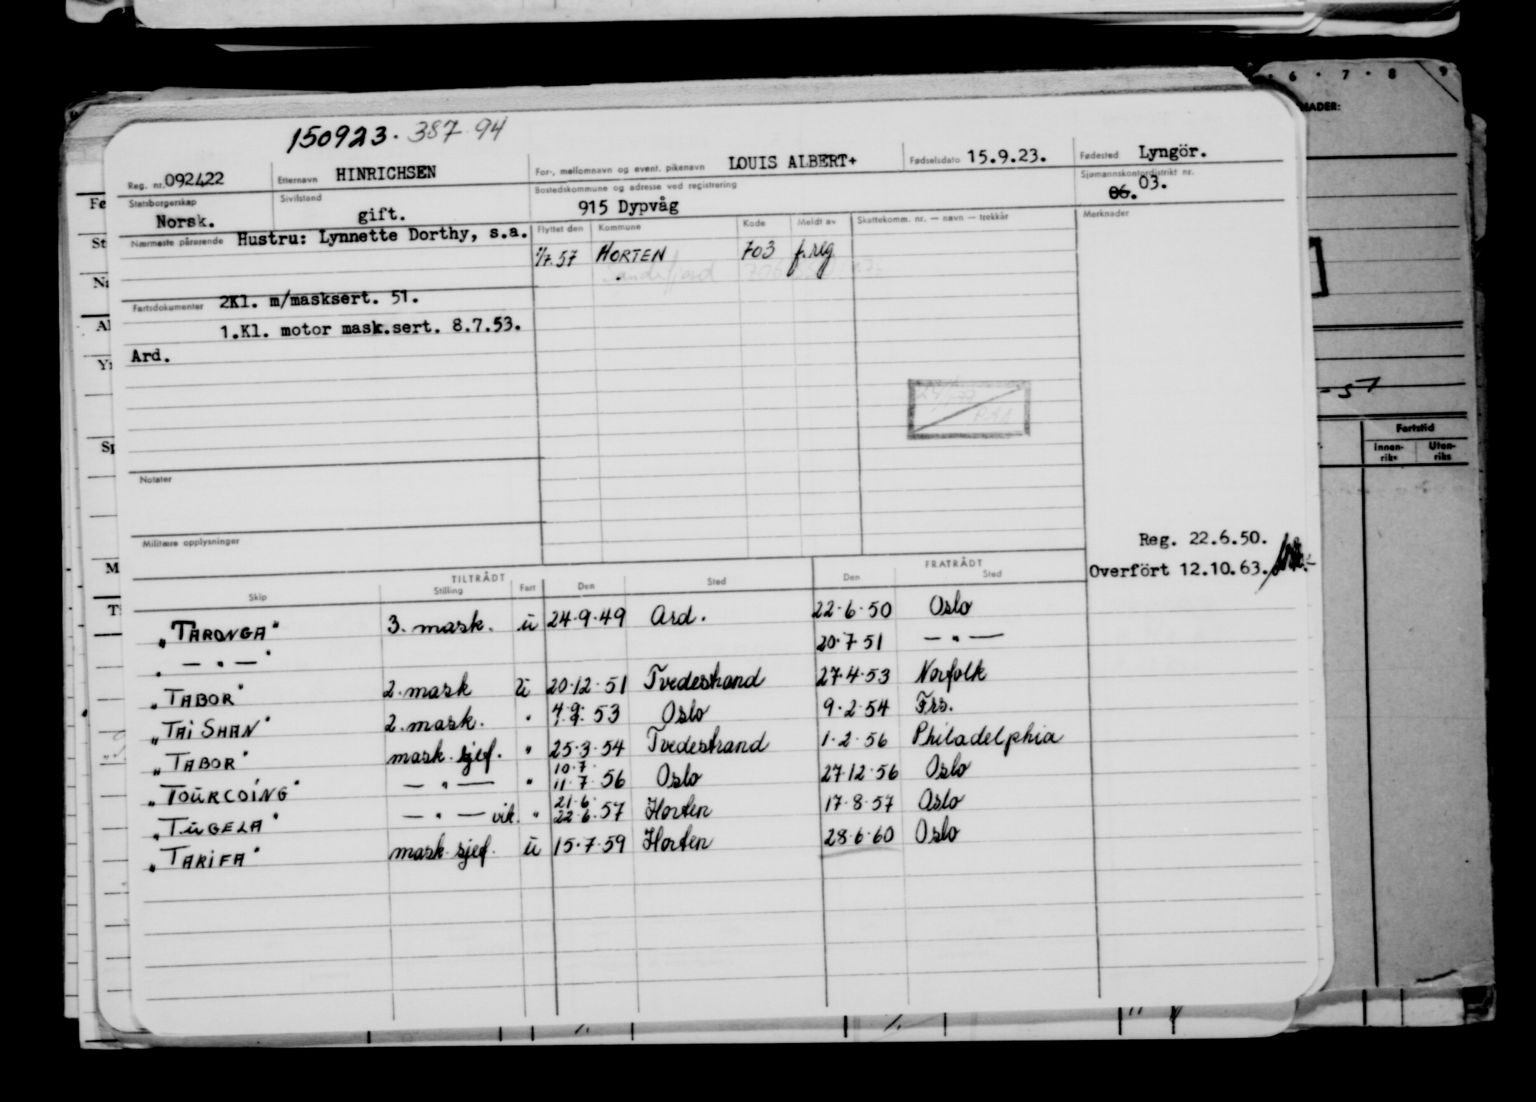 6 · 7 · 8 9
MADER:
150923. 387 94
Reg. nr. 092422 Etternavn HINRICHSEN For-, mellomnavn og event. pikenavn LOUIS ALBERT+ Fødselsdato 15.9.23. Fødested Lyngör.
Statsborgerskap Norsk. Sivilstand gift. Bostedskommune og adresse ved registrering 915 Dypvåg Sjømannskontordistrikt nr. 06. 03.
Nærmeste pårørende Hustru: Lynnette Dorthy, s.a. Flyttet den Kommune Kode Meldt av Skattekomm. nr. — navn — trekkår Merknader
1/7.57 HORTEN 703 f.reg
Sandefjord 706
Fartsdokumenter 2Kl. m/masksert. 51.
1.Kl. motor mask.sert. 8.7.53.
Ard.
Notater
Militære opplysninger
Reg. 22.6.50.
Overfört 12.10.63.
TILTRÅDT FRATRÅDT
Skip Stilling Fart Den Sted Den Sted
"TARONGA" 3. mask. ü 24·9·49 Ard. 22·6·50 Oslo
" — " — " 20·7 51 — " —
"TABOR" 2. mask ü 20·12·51 Tvedestrand 27·4·53 Norfolk
"TAI SHAN" 2. mask. " 53 Oslo 9·2·54 Frs.
"TABOR" mask. sjef. " 25·3·54 Tvedestrand 1·2·56 Philadelphia
"TOURCOING" — " — " 10·7· 11·7·56 Oslo 27·12·56 Oslo
"TUGELA" — " — vik. " 21·6· 22·6·57 Horten 17·8·57 Oslo
"TARIFA" mask. sjef. ü 15·7·59 Horten 28·6·60 Oslo
Fartstid
Innen-riks Uten-riks